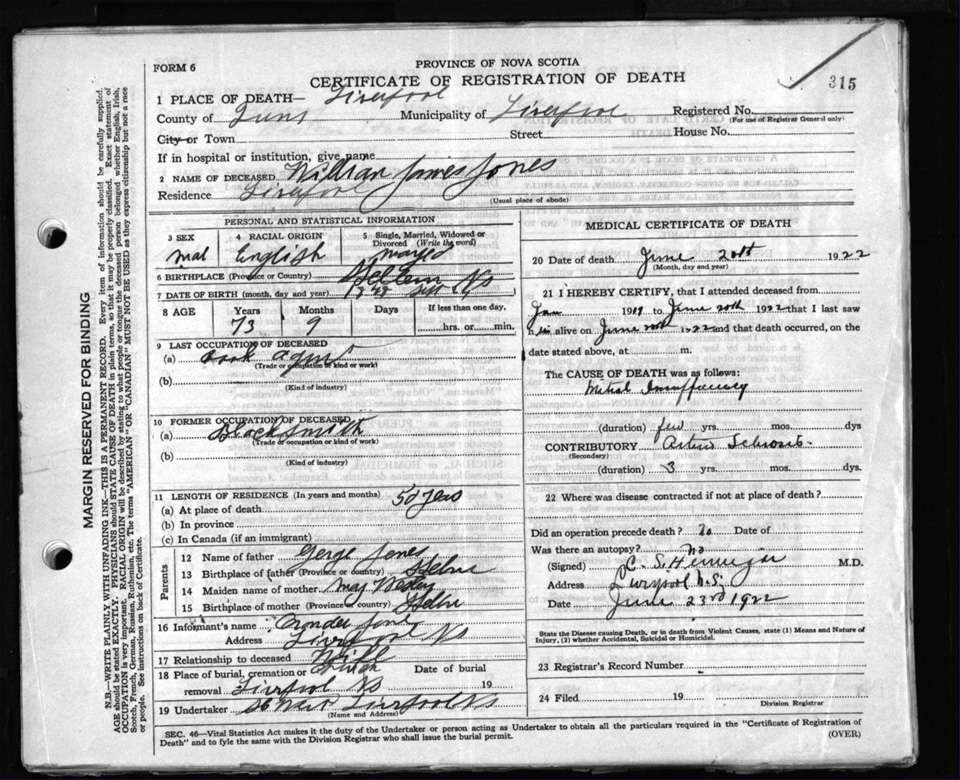 FORM 6
PROVINCE OF NOVA SCOTIA
CERTIFICATE OF REGISTRATION OF DEATH
315
1 PLACE OF DEATH— Liverpool
County of Municipality of Liverpool Registered No.
(For use of Registrar General only)
City or Town Street House No.
If in hospital or institution, give name
2 NAME OF DECEASED James Jones
Residence Liverpool
(Usual place of abode)
PERSONAL AND STATISTICAL INFORMATION
3 SEX 4 RACIAL ORIGIN 5 Single, Married, Widowed or Divorced (Write the word)
Mal English
6 BIRTHPLACE (Province or Country) NS
7 DATE OF BIRTH (month, day and year)
8 AGE Years Months Days If less than one day,
73 9 hrs. or min.
9 LAST OCCUPATION OF DECEASED
(a)
(Trade or occupation or kind of work)
(b)
(Kind of industry)
10 FORMER OCCUPATION OF DECEASED
(a) Blacksmith
(Trade or occupation or kind of work)
(b)
(Kind of industry)
11 LENGTH OF RESIDENCE (In years and months) 50
(a) At place of death
(b) In province
(c) In Canada (if an immigrant)
Parents
12 Name of father Jones
13 Birthplace of father (Province or country)
14 Maiden name of mother
15 Birthplace of mother (Province or country)
16 Informant's name
Address Liverpool NS
17 Relationship to deceased
18 Place of burial, cremation or Date of burial
removal Liverpool NS 19
19 Undertaker Liverpool NS
(Name and Address)
MEDICAL CERTIFICATE OF DEATH
20 Date of death June 20th 1922
(Month, day and year)
21 I HEREBY CERTIFY, that I attended deceased from
Jan 1919 to June 20th 1922 that I last saw
alive on June 20th 1922 and that death occurred, on the
date stated above, at m.
The CAUSE OF DEATH was as follows:
Mitral Insufficiency
(duration) few yrs. mos. dys
CONTRIBUTORY
(Secondary)
(duration) 3 yrs. mos. dys.
22 Where was disease contracted if not at place of death?
Did an operation precede death? Date of
Was there an autopsy? no
(Signed) M.D.
Address
Date June 23rd 1922
State the Disease causing Death, or in death from Violent Causes, state (1) Means and Nature of
Injury, (2) whether Accidental, Suicidal or Homicidal.
23 Registrar's Record Number
24 Filed 19
Division Registrar
SEC. 46—Vital Statistics Act makes it the duty of the Undertaker or person acting as Undertaker to obtain all the particulars required in the "Certificate of Registration of
Death" and to fyle the same with the Division Registrar who shall issue the burial permit.
(OVER)
MARGIN RESERVED FOR BINDING
N.B.—WRITE PLAINLY WITH UNFADING INK—THIS IS A PERMANENT RECORD. Every item of information should be carefully supplied.
AGE should be stated EXACTLY. PHYSICIANS should STATE CAUSE OF DEATH in plain terms, so that it may be properly classified. Exact statement of
OCCUPATION is very important. RACIAL ORIGIN will be described by stating to what people or tongue the deceased person belonged whether English, Irish,
Scotch, French, German, Russian, Ruthenian, etc. The terms "AMERICAN" or "CANADIAN" MUST NOT BE USED as they express citizenship but not a race
or people. See instructions on back of Certificate.